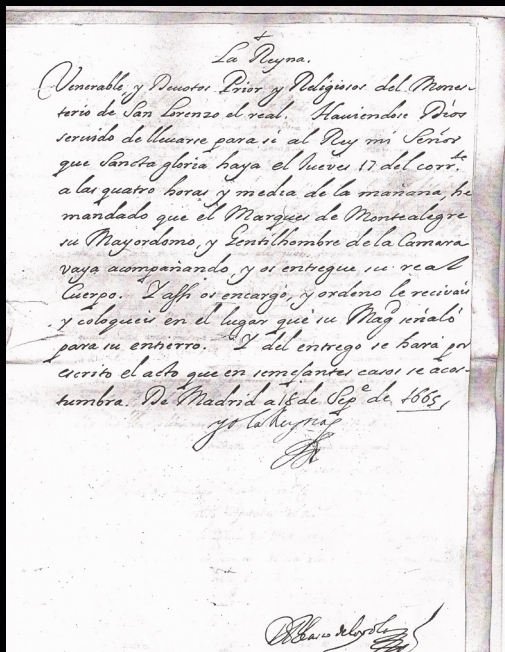 +
La Reyna.
Venerable, y Devotos Prior y Religiosos del Mones-
terio de San Lorenzo el real. Haviendose Dios
servido de llevarse para si al Rey mi Señor
que sancta gloria haya el Jueves 17 del corr.te
a las quatro horas y media de la mañana, he
mandado que el Marques de Montealegre
su Mayordomo, y Gentilhombre de la Camara
vaya acompañando, y os entregue su real
Cuerpo. Y assi os encargo, y ordeno le recivais
y coloqueis en el lugar que su Magd señaló
para su entierro. Y del entrego se hará por
escrito el acto que en semejantes casos se acos-
tumbra. De Madrid a 18 de Sep.e de 1665,
yo la Reyna
Blasco de Loyola